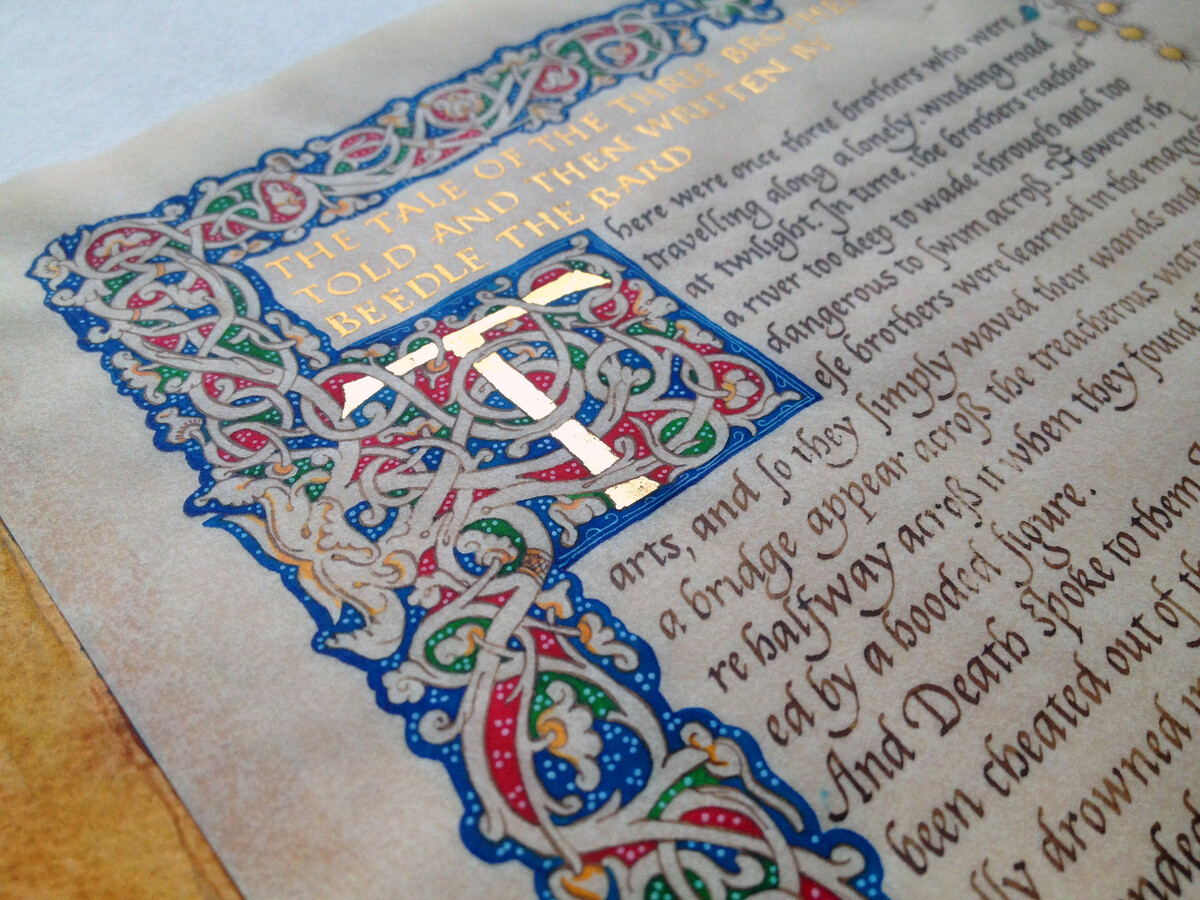 THE TALE OF THE THREE BROTHERS
TOLD AND THEN WRITTEN BY
BEEDLE THE BARD
T
here were once three brothers who were
travelling along a lonely, winding road
at twilight. In time, the brothers reached
a river too deep to wade through and too
dangerous to ſwim acroß. However, th
eſe brothers were learned in the magic
arts, and ſo they ſimply waved their wands and
a bridge appear acroß the treacherous wat
re halfway acroß it when they found
ed by a hooded figure.
And Death ſpoke to them
been cheated out of th
lly drowned
nded